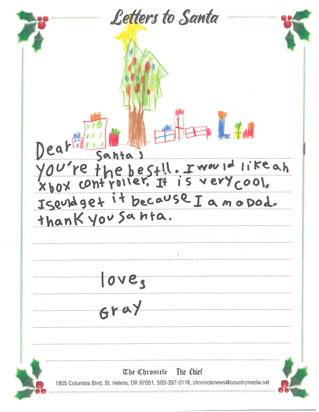 Letters to Santa
Dear
Santa,
You're the best!!. I would like ah
Xbox controller. It is very cool.
I sould get it because I am a Dod.
thank you Santa.
love,
Gray
The Chronicle The Chief
1805 Columbia Blvd, St. Helens, OR 97051, 503-397-0116, chroniclenews@countrymedia.net